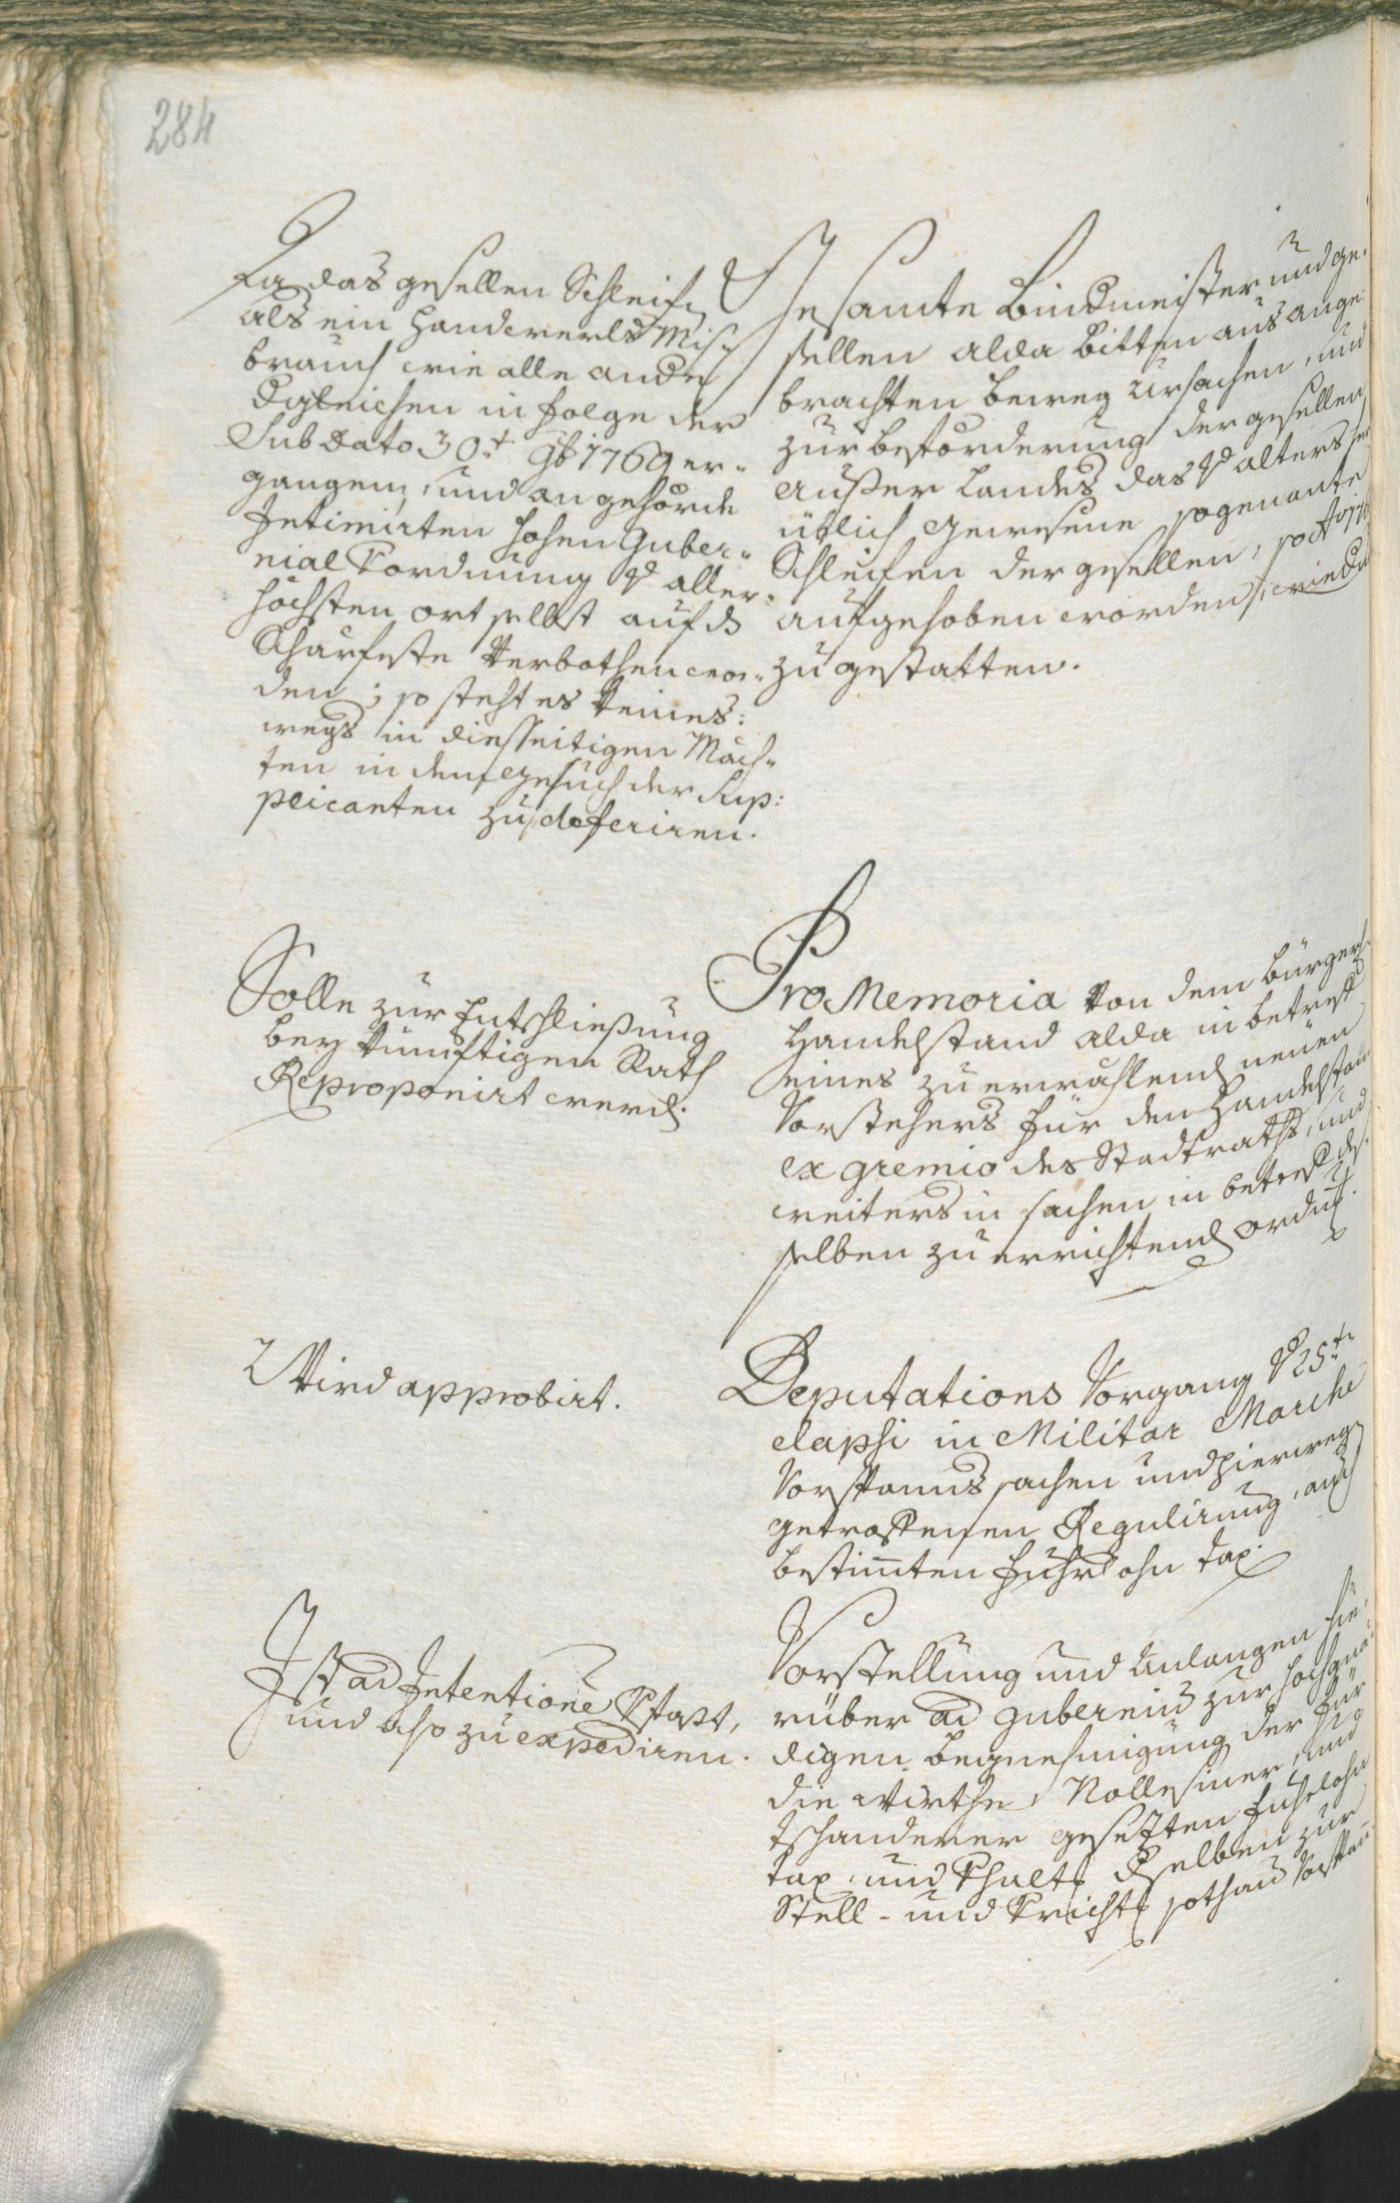 284
Da das gesellen Schleifen
als ein Handwerks Miß
brauch wie alle andre
dgleichen in folge der
Sub Dato 30t 9b 1769 er-
gangen, und an gehörde
Intimirten hohen Guber-
nial Vordnung v aller-
höchsten ort selbst auf ds
Schärfeste verbothen wor-
den; so steht es keines:
wegs in diesseitigen Mäch-
ten in dem gesuch der Sup:
plicanten zu deferiren.
Gesamte Bindmeister und ge-
sellen alda bitten aus ange-
brachten beweg ursachen, und
zur beförderung der gesellen
ausser Landes das v alters her
üblich gewesene sogenante
Schleifen der gesellen, so
aufgehoben worden, wieder
zu gestatten.
Solle zur Entschließung
bey künftigen Rath
Reproponirt werd.
Pro Memoria von dem bürgerl.
Handelstand alda in betref
eines zu erwählend neuen
Vorstehers für den Handelstan
ex gremio des Stadtraths, und
weiters in sachen in betref des-
selben zu errichtend ordng.
Wird approbirt.
Deputations Vorgang v 25te
elapsi in Militar Marche
Vorspanns sachen und hierweg
getroffenen Regulirung, auch
bestimten fuhrlohn tax.
Ist ad Intentione Vfast,
und also zu expediren.
Vorstellung und Anlangen hie-
rüber ad gubernium zur hochgnä-
digen begnehmigung der für
die Wirthe, Kollesiner, und
tschanderer gesezten fuhrlohn
tax, und Vhalt dselben zur
Stell- und Vricht sothan Vorspan